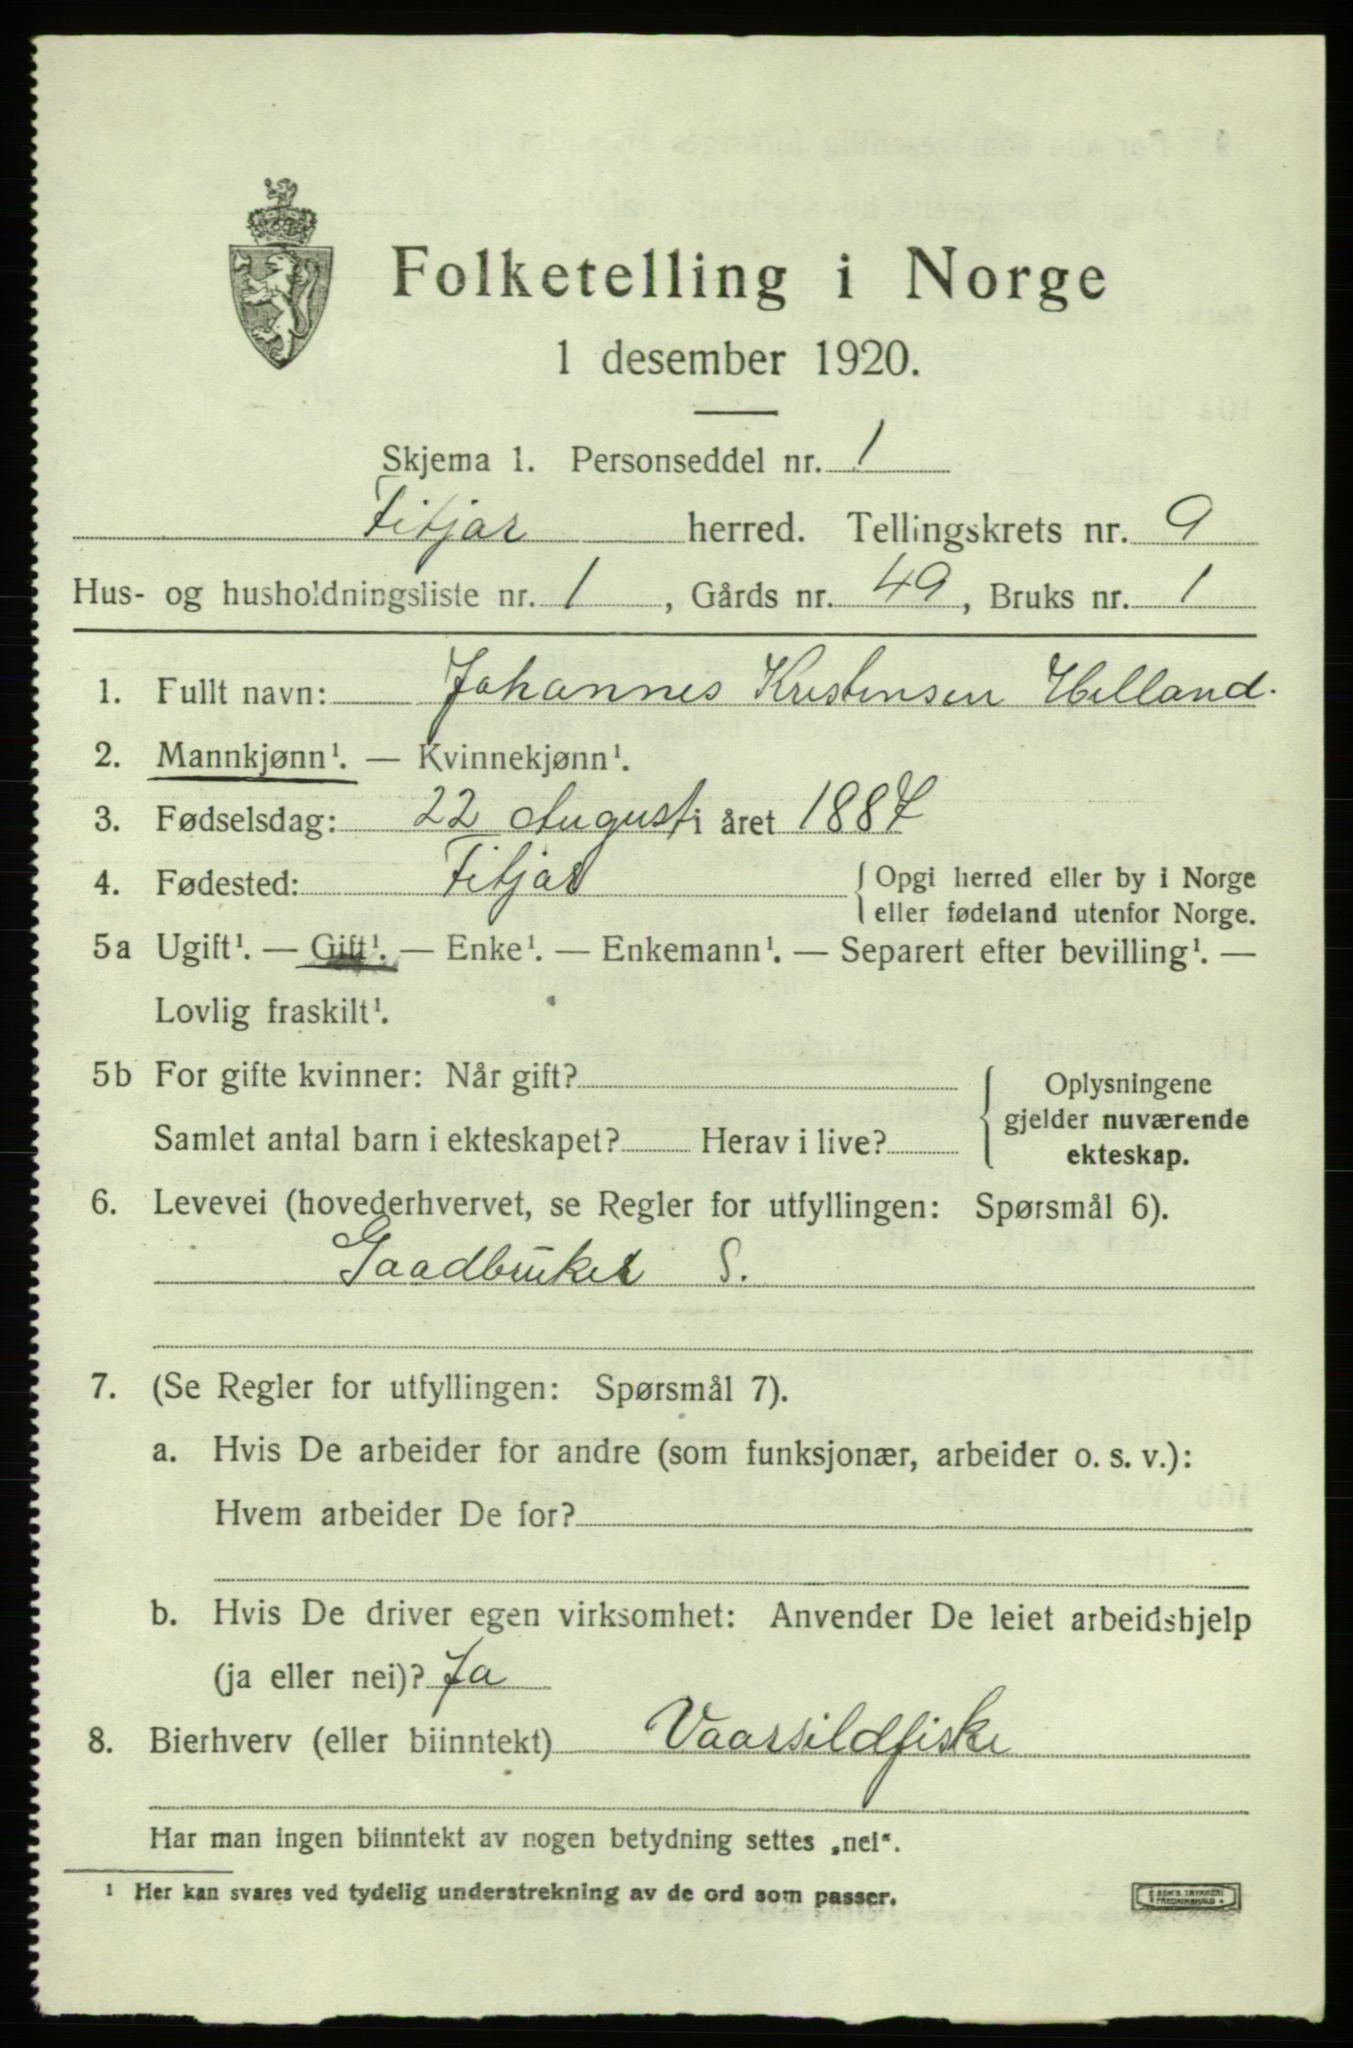 Folketelling i Norge
1 desember 1920.
Skjema 1. Personseddel nr. 1
Fitjar herred. Tellingskrets nr. 9
Hus- og husholdningsliste nr. 1, Gårds nr. 49, Bruks nr. 1
1. Fullt navn: Johannes Kristensen Helland.
2. Mannkjønn¹. — Kvinnekjønn¹.
3. Fødselsdag: 22 August i året 1887
4. Fødested: Fitjar { Opgi herred eller by i Norge
eller fødeland utenfor Norge.
5a Ugift¹. — Gift¹. — Enke¹. — Enkemann¹. — Separert efter bevilling¹. —
Lovlig fraskilt¹.
5b For gifte kvinner: Når gift? { Oplysningene
gjelder nuværende
Samlet antal barn i ekteskapet? Herav i live?
ekteskap.
6. Levevei (hovederhvervet, se Regler for utfyllingen: Spørsmål 6).
Gaadbruker S.
7. (Se Regler for utfyllingen: Spørsmål 7).
a. Hvis De arbeider for andre (som funksjonær, arbeider o. s. v.):
Hvem arbeider De for?
b. Hvis De driver egen virksomhet: Anvender De leiet arbeidshjelp
(ja eller nei)? Ja
8. Bierhverv (eller biinntekt) Vaarsildfiske
Har man ingen biinntekt av nogen betydning settes „nei“.
¹ Her kan svares ved tydelig understrekning av de ord som passer.